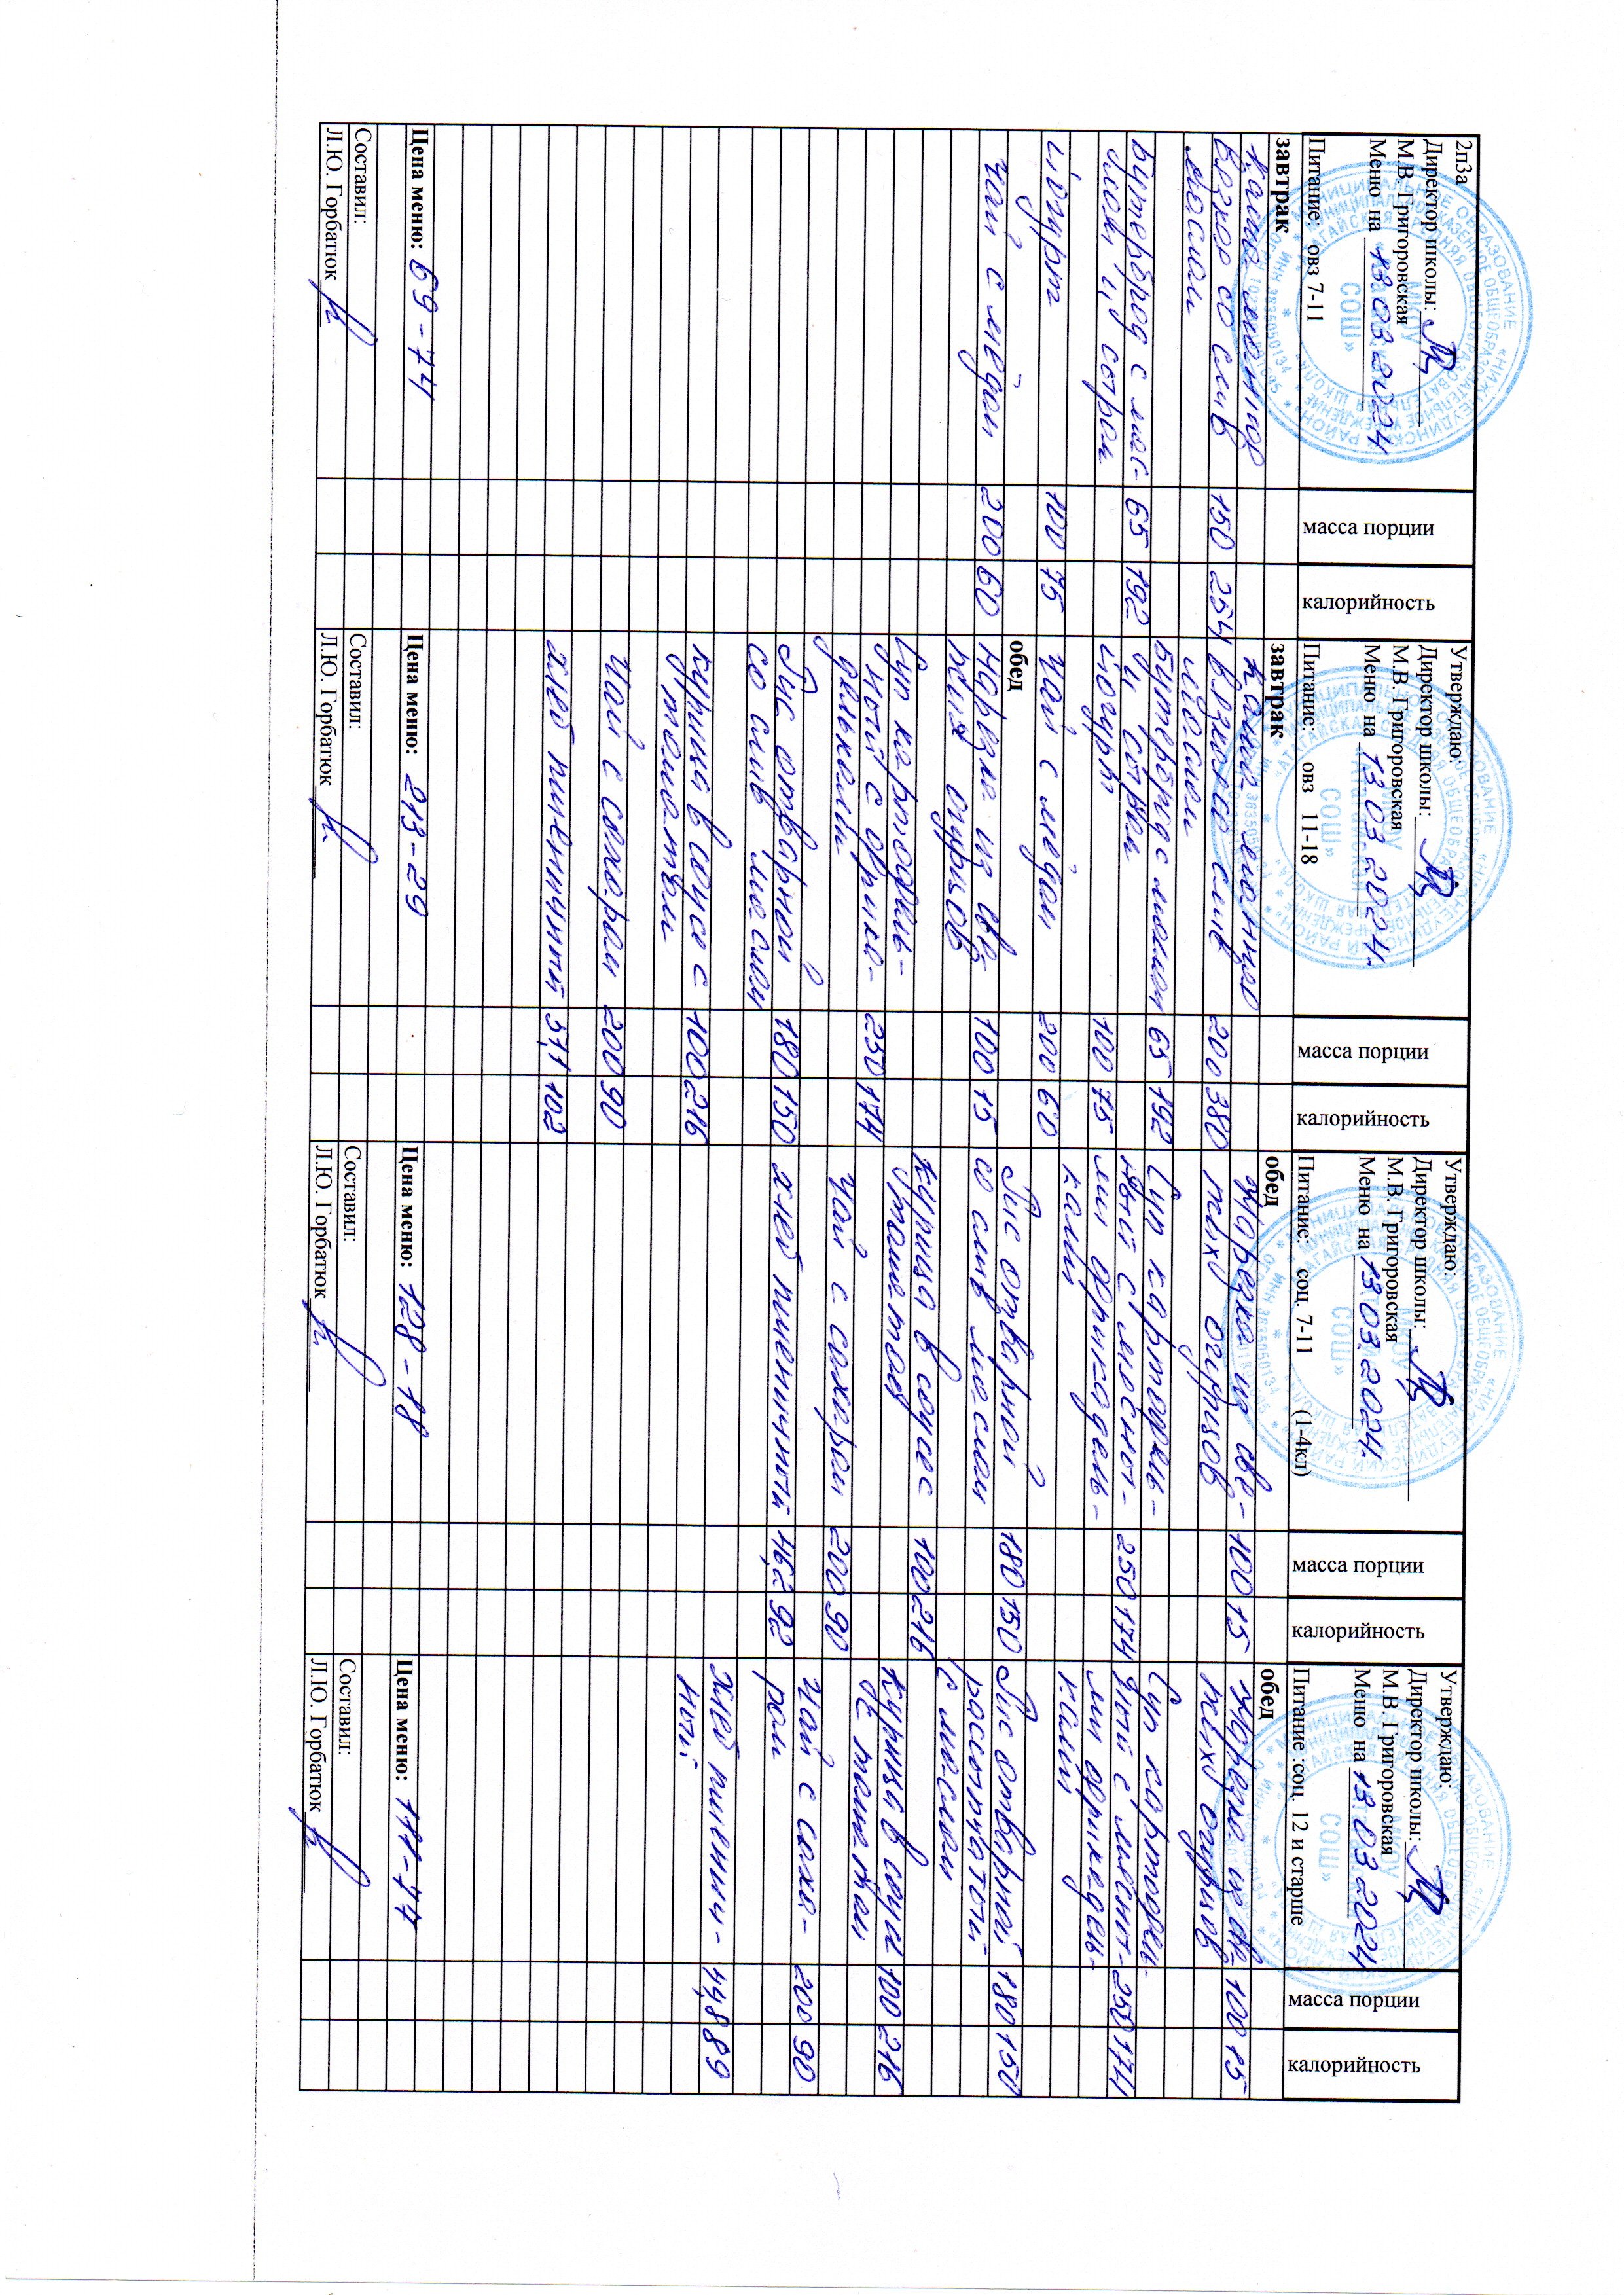 2п3а
Директор школы:
М.В. Григоровская
Меню на 13 03 2024
Питание: овз 7-11
масса порции
калорийность
завтрак
Каша молочная
вязкая со слив
маслом 150 254
Бутерброд с мас-
лом и сыром 65 192
йогурт 100 75
чай с мёдом 200 60
Цена меню: 69-74
Составил:
Л.Ю. Горбатюк
Утверждаю:
Директор школы:
М.В. Григоровская
Меню на 13 03. 2024.
Питание: овз 11-18
масса порции
калорийность
завтрак
Каша молочная
вязкая со слив 200 380
маслом
Бутерброд с маслом 65 192
и сыром
йогурт 100 75
чай с мёдом 200 60
обед
нарезка из све- 100 15
жих огурцов
Суп картофель-
ный с фрика- 250 174
дельками
Рис отварной 180 150
со слив маслом
курица в соусе с 100 216
томатом
чай с сахаром 200 90
хлеб пшеничный 51,1 102
Цена меню: 213-29
Составил:
Л.Ю. Горбатюк
Утверждаю:
Директор школы:
М.В. Григоровская
Меню на 13 03 2024.
Питание: соц. 7-11 (1-4кл)
масса порции
калорийность
обед
Нарезка из све- 100 15
жих огурцов
Суп картофель-
ный с мясны- 250 174
ми фрикадель-
ками
Рис отварной 180 150
со слив маслом
курица в соусе с 100 216
томатом
чай с сахаром 200 90
хлеб пшеничный 46,2 92
Цена меню: 128-18
Составил:
Л.Ю. Горбатюк
Утверждаю:
Директор школы:
М.В. Григоровская
Меню на 13.03 2024
Питание :соц. 12 и старше
масса порции
калорийность
обед
Нарезка из све- 100 15
жих огурцов
Суп картофель-
ный с мясны- 250 174
ми фрикадель-
ками
Рис отварной 180 150
рассыпчатый
с маслом
курица в соусе 100 216
с томатом
чай с саха- 200 90
ром
Хлеб пшенич- 44,8 89
ный
Цена меню: 111-77
Составил:
Л.Ю. Горбатюк